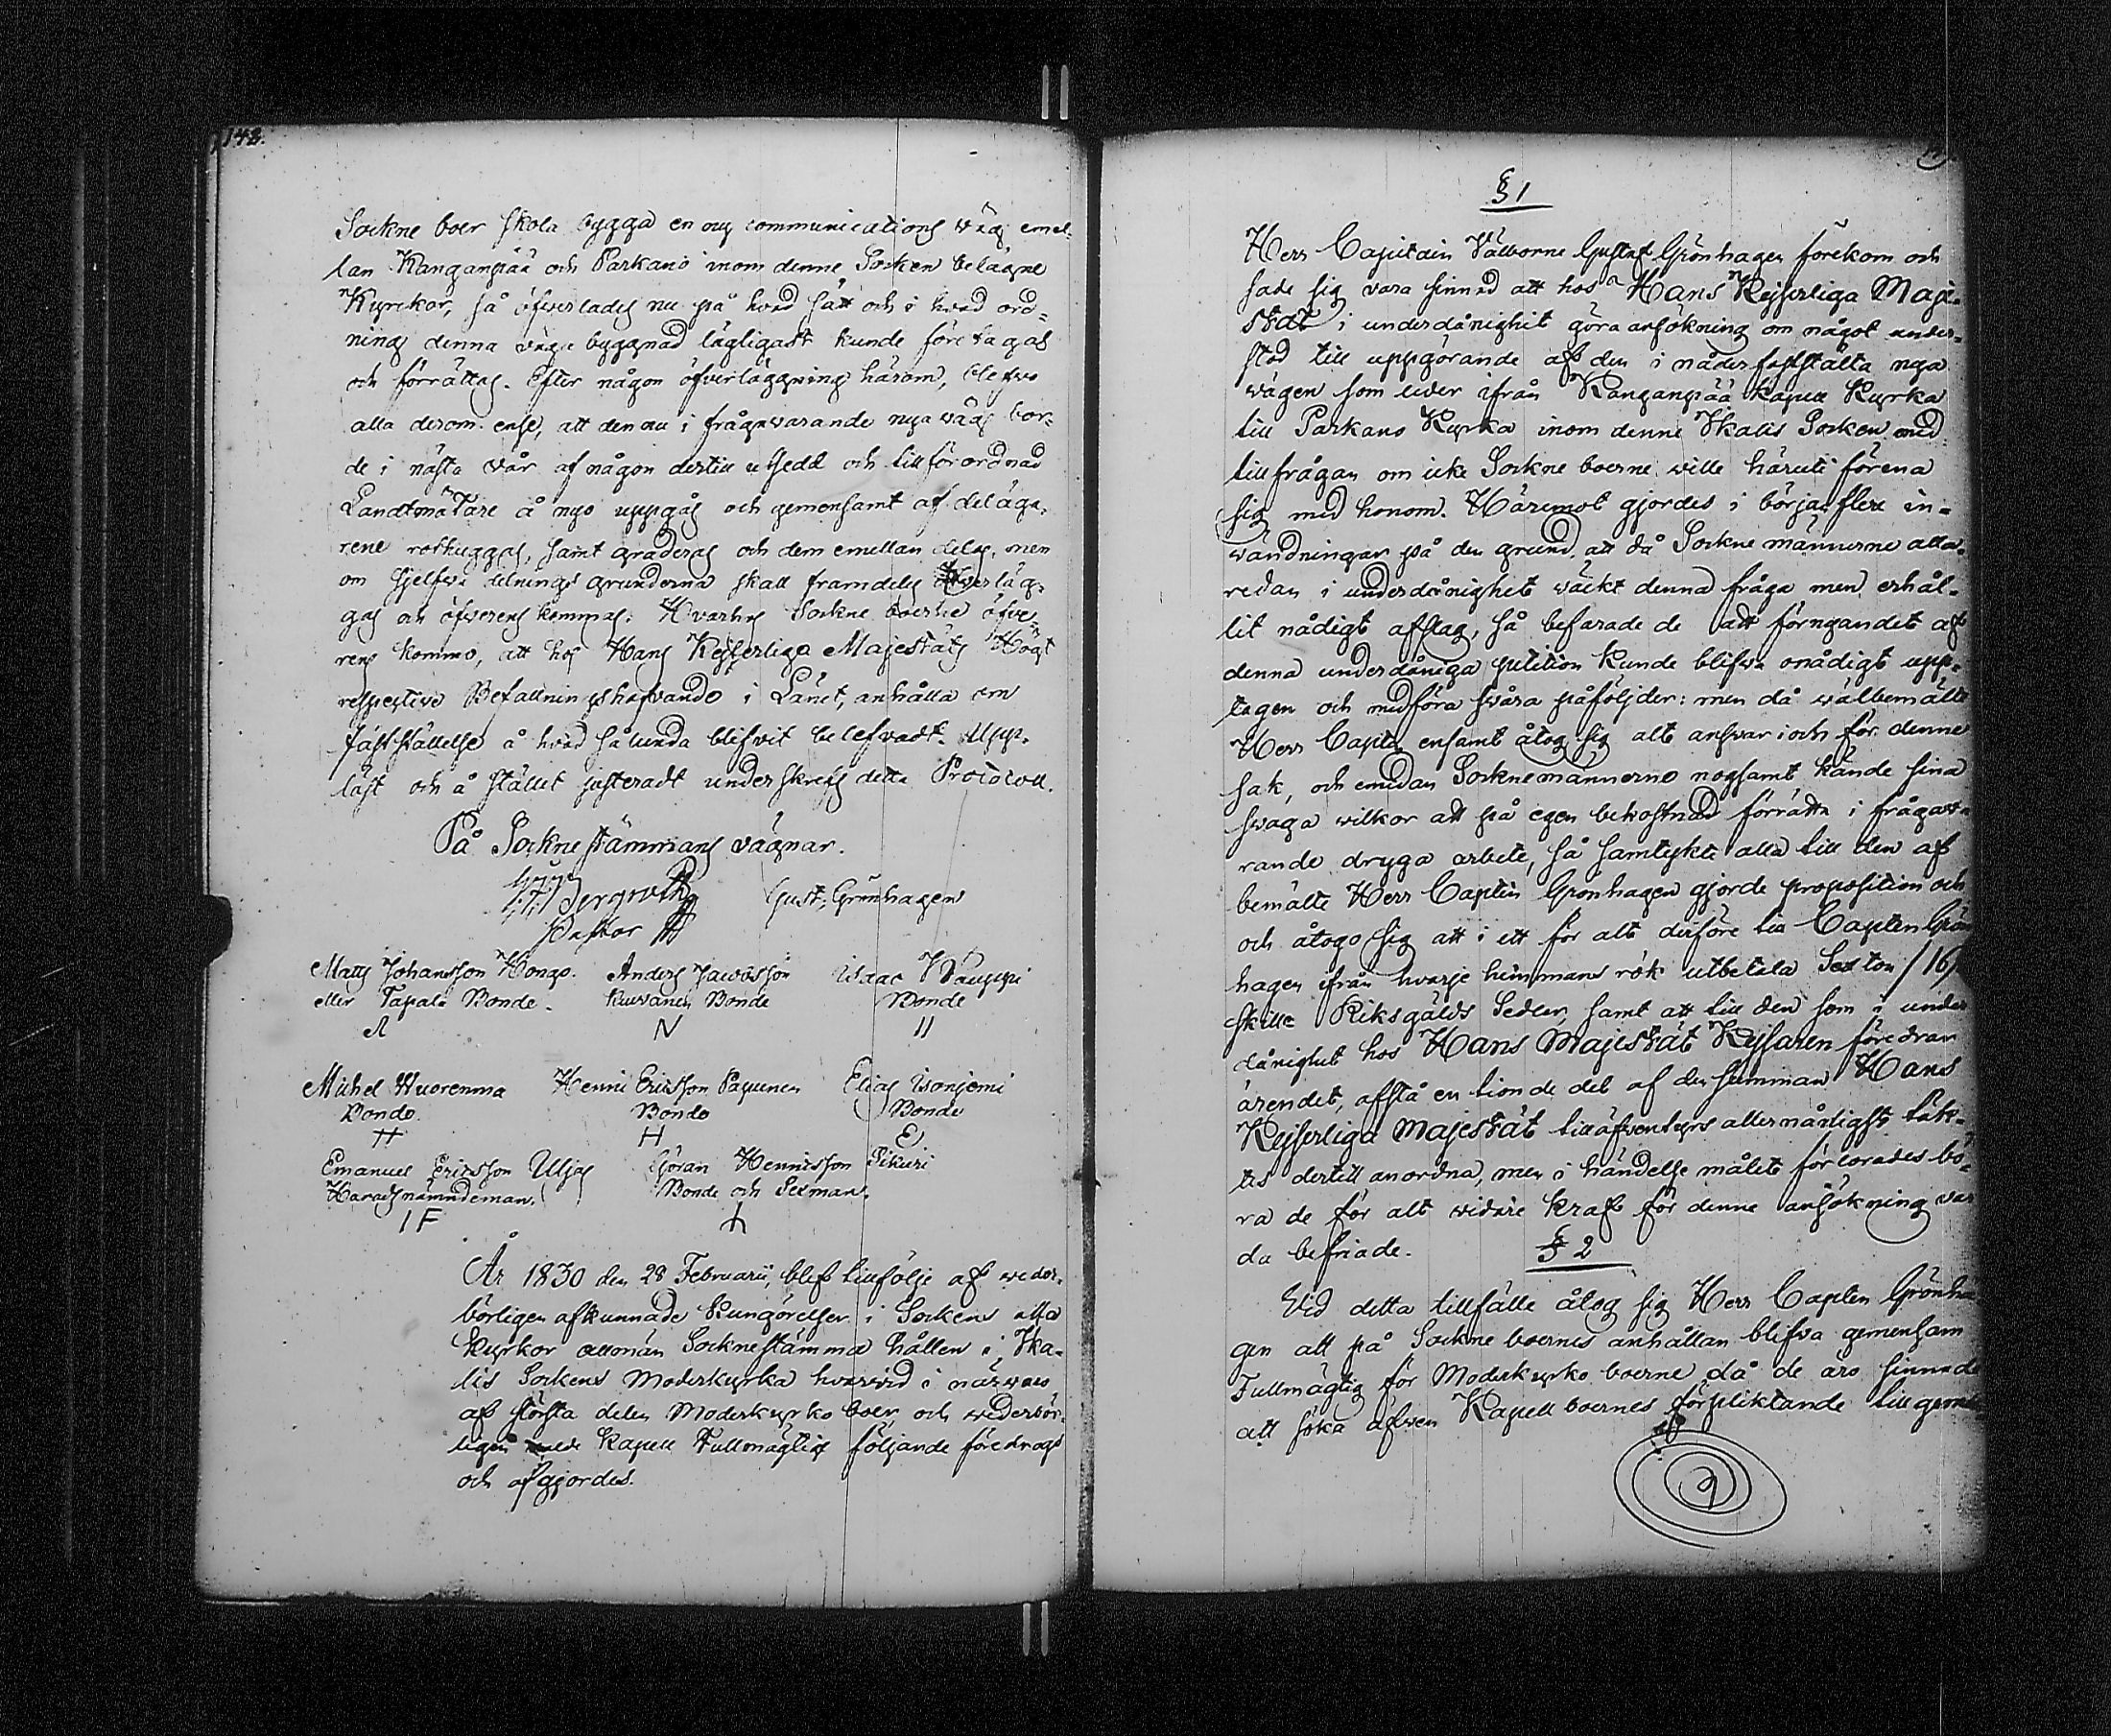 148.
Sockne boer skola bygga en ny communications väg emel-
lan Kanganpää och Parkano inom denne Socken belägne
Kyrckor, så öfverlades nu på hvad sätt och i hvad ord-
ning denna väge byggnad lägligast kunde företagas
och förrättas. Efter någon öfverläggning härom, blefvo
alla derom ense, att den nu i frågavarande nya väg bor-
de i nästa vår af någon dertill utsedd och till förordnad
Landtmätare å nyo uppgås och gemensamt af delägar-
rene rothuggas, samt graderas och dem emellan delas, men
om sjelfva delnings grunderna skall framdeles öfverläg-
gas och öfverens kommas. Hvarhos Sockne boerne öfve-
rens kommo, att hos Hans Kejserliga Majestäts Högt
respective Befallningshafvande i Länet, anhålla om
fastställelse å hvad sålunda blifvit belefvadt. Upp-
läst och å stället justeradt underskrefs detta Protocoll.
På Sockne stämmans vägnar.
Bergroth Gust: Grönhagen
Pastor
Matts Johansson Hongo. Anders Jacobsson Isaac Kauppi
eller Tapala Bonde. Kuivanen Bonde Bonde
A N II
Michel Wuorenmaa Henric Ericsson Papunen Elias Isoniemi
Bonde. Bonde Bonde
H H E
Emanuel Ericsson Uljas Göran Henricsson Pikuri
Haradsnämndeman. Bonde och Sexman.
I F
År 1830 den 28 Februarii, blef tillfölje af veder-
börligen afkunnade Kungörelser i Sockens alla
Kyrkor allmän Socknestämma hållen i Ika-
lis Sockens Moderkyrka hvarvid i närvaro
af största delen Moderkyrko boer och vederbör-
ligen Kapell Fullmägtig följande föredrogs
och afgjordes.
§ 1
Herr Capitain Välborne Gustaf Grönhagen förekom och
sade sig vara sinnad att hos Hans Kejserliga Maje-
stät i underdånighet göra ansökning om något under-
stöd till uppgörande af den i nåder fastställta nya
vägen som leder ifrån Kanganpää Kapell Kyrka
till Parkano Kyrka inom denne Ikalis Socken med
tillfrågan om icke Sockne boerne ville häruti förena
sig med honom. Häremot gjordes i början flere in-
vändningar på den grund, att då Sockne männerne alla-
redan i underdånighet väckt denna fråga men erhål-
lit nådigt afslag, så befarade de att förnyandet af
denna underdåniga petition kunde blifva onådigt upp-
tagen och medföra svåra påföljder: men då välbemälte
Herr Capten ensamt åtog sig alt ansvar i och för denne
sak, och emedan Socknemännerne nogsamt kände sina
svaga wilkor att på egen bekostnad förrätta i frågava-
rande dryga arbete, så samtykte alla till den af
bemälte Herr Capten Grönhagen gjorde proposition och
och åtogo sig att i ett för alt derföre till Capten Grön-
hagen ifrån hvarje hemmans rök utbetala Sexton /16/
skill: Riksgälds Sedlar, samt att till den som i under-
dånighet hos Hans Majestät Kejsaren föredrar
ärendet, afstå en tionde del af den summan Hans
Kejserliga Majestät tilläfventyrs allernådigst täk-
tes dertill anordna, men i händelse målets förlorades bö-
ra de för alt vidare kraf för denne ansökning var
da befriade.
§ 2
Vid detta tillfälle åtog sig Herr Capten Grönha-
gen att på Sockne boernes anhållan blifva gemensam
Fullmägtig för Moderkyrko boerne då de äro sinnade
att söka äfven Kapell boernes förpliktande till gemen